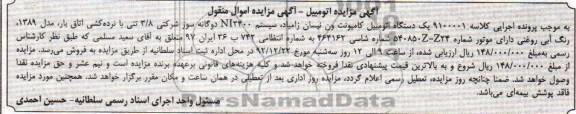 آگهی مزایده اتومبیل - آگهی مزایده اموال منقول
به موجب پرونده اجرایی کلاسه ۹۱۰۰۰۰۱ یک دستگاه اتومبیل کامیونت ون نیسان زامیاد، سیستم NI۲۴۰۰ دوگانه سوز شرکتی ۳/۸ تنی با نرده‌کشی اتاق بار، مدل ۱۳۸۹،
رنگ آبی روغنی دارای موتور شماره ۵۴۰۸۵۰-Z-Z۲۴ شماره شاسی ۴۶۳۱۶۲ به شماره انتظامی ۷۴۲ ب ۳۶ ایران ۹۷ متعلق به آقای سعید مسلمی که طبق نظر کارشناس
رسمی به‌مبلغ ۱۴۸/۰۰۰/۰۰۰ ریال ارزیابی شده، از ساعت ۹ الی ۱۲ روز سه‌شنبه مورخ ۹۲/۱۲/۲۲ در محل اداره ثبت اسناد سلطانیه از طریق مزایده به فروش می‌رسد. مزایده
از مبلغ ۱۴۸/۰۰۰/۰۰۰ ریال شروع و به بالاترین قیمت پیشنهادی نقدا فروخته خواهد شد و کلیه هزینه‌های قانونی برعهده برنده مزایده است و نیم عشر و حق مزایده نقدا
وصول خواهد شد. ضمنا چنانچه روز مزایده، تعطیل رسمی اعلام گردد، مزایده روز اداری بعد از تعطیلی در همان ساعت و مکان مقرر برگزار خواهد شد. همچنین مورد مزایده
فاقد پوشش بیمه‌ای می‌باشد.
مسئول واحد اجرای اسناد رسمی سلطانیه- حسین احمدی
ParsNamadData